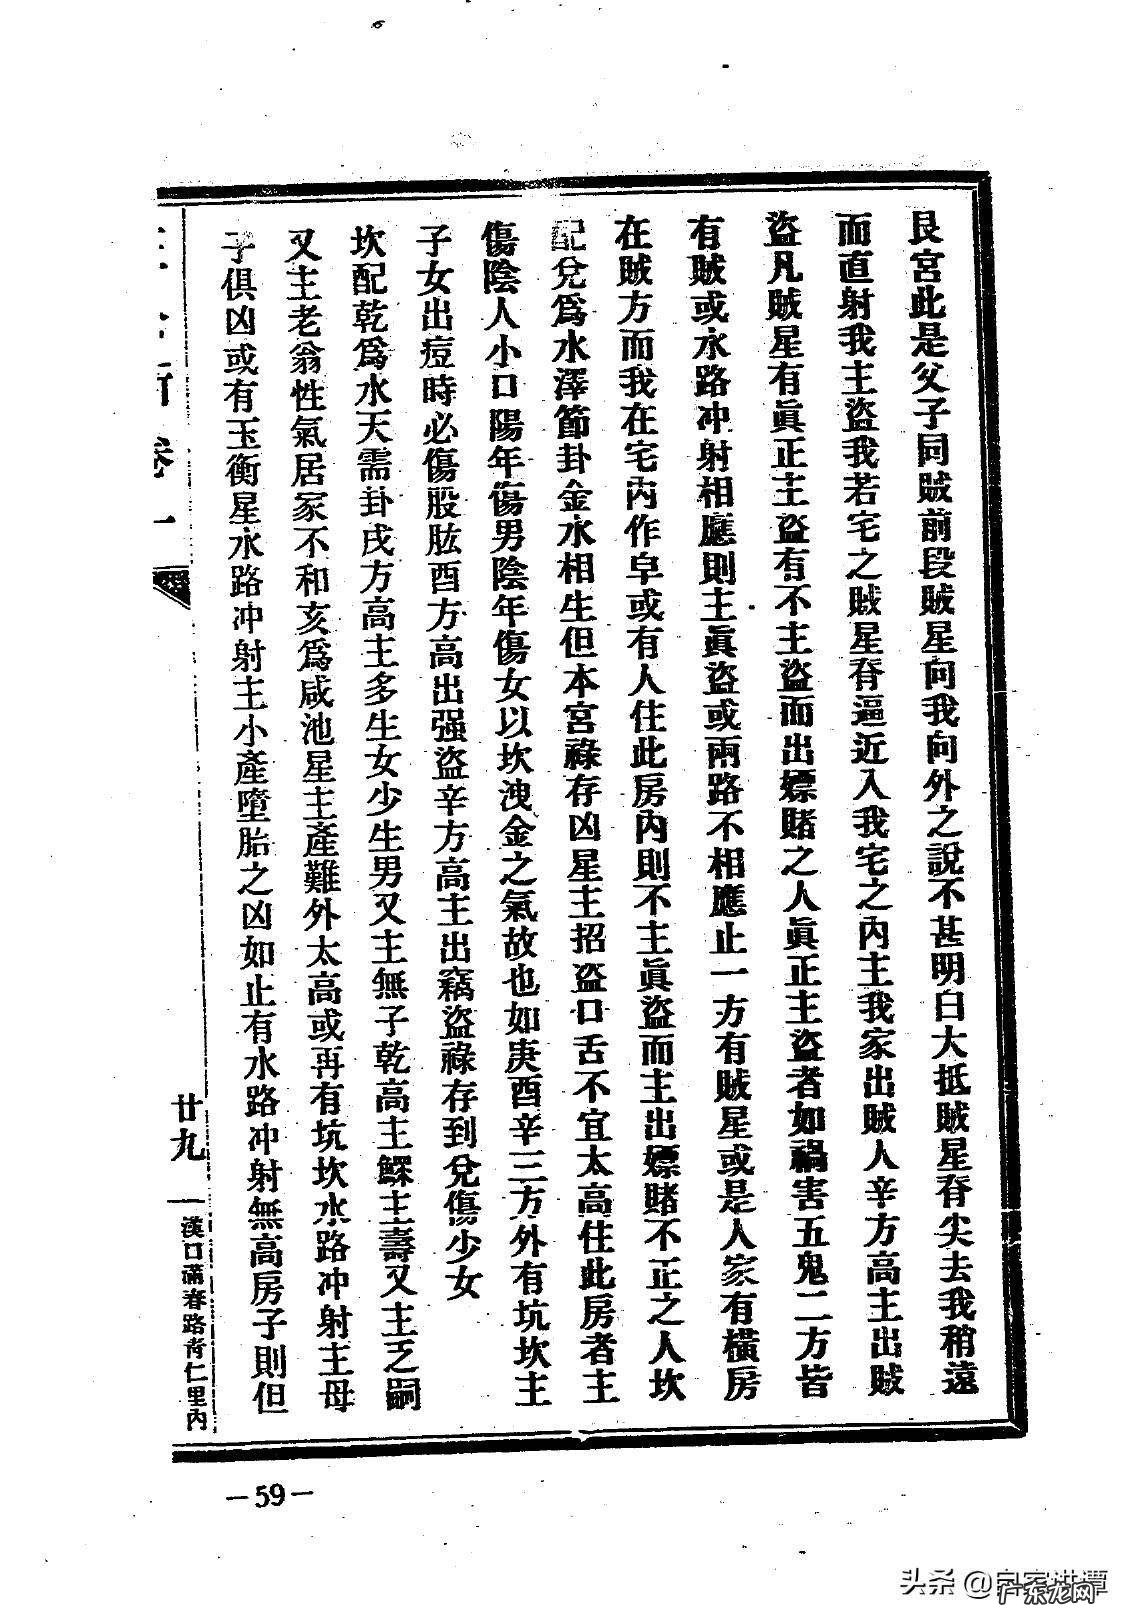 艮宮此是父子同賊前段賊星向我向外之說不甚明白大抵賊星脊尖去我稍遠
而直射我主盜我若宅之賊星脊逼近入我宅之內主我家出賊人辛方高主出賊
盜凡賊星有眞正主盜有不主盜而出嫖賭之人眞正主盜者如禍害五鬼二方皆
有賊或水路冲射相應則主眞盜或兩路不相應止一方有賊星或是人家有橫房
在賊方而我在宅內作皁或有人住此房內則不主眞盜而主出嫖賭不正之人坎
配兌爲水澤節卦金水相生但本宮祿存凶星主招盜口舌不宜太高住此房者主
傷陰人小口陽年傷男陰年傷女以坎洩金之氣故也如庚酉辛三方外有坑坎主
子女出痘時必傷股肱酉方高出强盜辛方高主出竊盜祿存到兌傷少女
坎配乾爲水天需卦戌方高主多生女少生男又主無子乾高主鰥主壽又主乏嗣
又主老翁性氣居家不和亥爲咸池星主產難外太高或再有坑坎水路冲射主母
子俱凶或有玉衡星水路冲射主小產墮胎之凶如止有水路冲射無高房子則但
卷一
廿九
漢口滿春路靑仁里內
—59—
头条
广东龙网